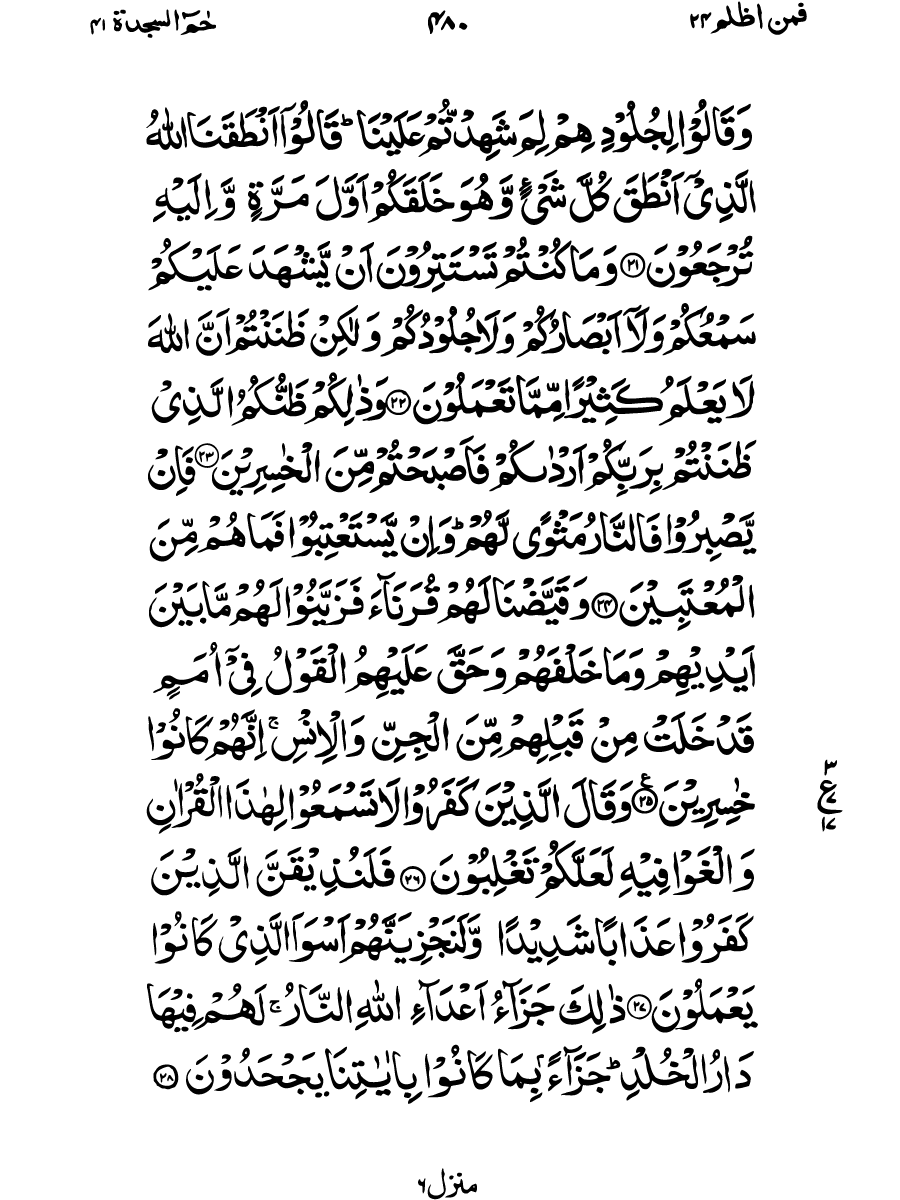 فمن اظلم ۲۴
۴۸۰
حٰمٓ السجدة ۴۱
وَقَالُوْا لِجُلُوْدِهِمْ لِمَ شَهِدْتُّمْ عَلَيْنَا ؕ قَالُوْۤا اَنْطَقَنَا اللّٰهُ
الَّذِيْۤ اَنْطَقَ كُلَّ شَيْءٍ وَّهُوَ خَلَقَكُمْ اَوَّلَ مَرَّةٍ وَّاِلَيْهِ
تُرْجَعُوْنَ ﴿۲۱﴾ وَمَا كُنْتُمْ تَسْتَتِرُوْنَ اَنْ يَّشْهَدَ عَلَيْكُمْ
سَمْعُكُمْ وَلَاۤ اَبْصَارُكُمْ وَلَا جُلُوْدُكُمْ وَلٰكِنْ ظَنَنْتُمْ اَنَّ اللّٰهَ
لَا يَعْلَمُ كَثِيْرًا مِّمَّا تَعْمَلُوْنَ ﴿۲۲﴾ وَذٰلِكُمْ ظَنُّكُمُ الَّذِيْ
ظَنَنْتُمْ بِرَبِّكُمْ اَرْدٰىكُمْ فَاَصْبَحْتُمْ مِّنَ الْخٰسِرِيْنَ ﴿۲۳﴾ فَاِنْ
يَّصْبِرُوْا فَالنَّارُ مَثْوًى لَّهُمْ ؕ وَاِنْ يَّسْتَعْتِبُوْا فَمَا هُمْ مِّنَ
الْمُعْتَبِيْنَ ﴿۲۴﴾ وَقَيَّضْنَا لَهُمْ قُرَنَآءَ فَزَيَّنُوْا لَهُمْ مَّا بَيْنَ
اَيْدِيْهِمْ وَمَا خَلْفَهُمْ وَحَقَّ عَلَيْهِمُ الْقَوْلُ فِيْۤ اُمَمٍ
قَدْ خَلَتْ مِنْ قَبْلِهِمْ مِّنَ الْجِنِّ وَالْاِنْسِ ۚ اِنَّهُمْ كَانُوْا
خٰسِرِيْنَ ﴿۲۵﴾ ع وَقَالَ الَّذِيْنَ كَفَرُوْا لَا تَسْمَعُوْا لِهٰذَا الْقُرْاٰنِ
۳
ع
۱۷
وَالْغَوْا فِيْهِ لَعَلَّكُمْ تَغْلِبُوْنَ ﴿۲۶﴾ فَلَنُذِيْقَنَّ الَّذِيْنَ
كَفَرُوْا عَذَابًا شَدِيْدًا وَّلَنَجْزِيَنَّهُمْ اَسْوَاَ الَّذِيْ كَانُوْا
يَعْمَلُوْنَ ﴿۲۷﴾ ذٰلِكَ جَزَآءُ اَعْدَآءِ اللّٰهِ النَّارُ ۚ لَهُمْ فِيْهَا
دَارُ الْخُلْدِ ؕ جَزَآءًۢ بِمَا كَانُوْا بِاٰيٰتِنَا يَجْحَدُوْنَ ﴿۲۸﴾
منزل ۶